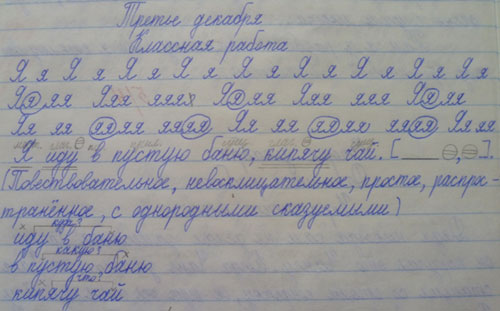 Третье декабря
Классная работа
Я я Я я Я я Я я Я я Я я Я я Я я
Яя яя Яяя яяяя Яя яя Яяя яяя Яя яя
Яя яя яя яя яя яя Яя яя яя яя яя яя Яя яя
Я иду в пустую баню, кипячу чай. [
(Повествовательное, невосклицательное, простое, распрос-
транённое, с однородными сказуемыми)
куда?
иду в баню
какую?
в пустую баню
что?
кипячу чай